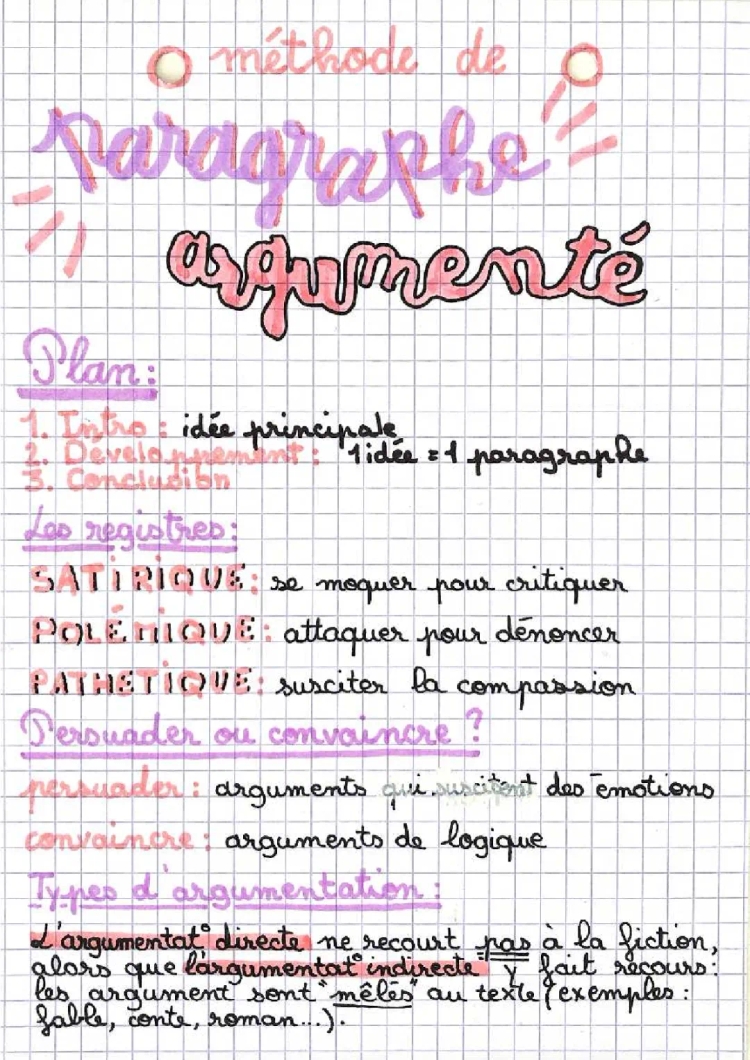 méthode de
paragraphe
argumenté
Plan :
1. Intro : idée principale
2. Développement : 1 idée = 1 paragraphe
3. Conclusion
Les registres :
SATIRIQUE : se moquer pour critiquer
POLÉMIQUE : attaquer pour dénoncer
PATHETIQUE : susciter la compassion
Persuader ou convaincre ?
persuader : arguments qui suscitent des émotions
convaincre : arguments de logique
Types d'argumentation :
L'argumentat° directe ne recourt pas à la fiction,
alors que l'argumentat° indirecte y fait recours :
les argument sont "mêlés" au texte (exemples :
fable, conte, roman...).